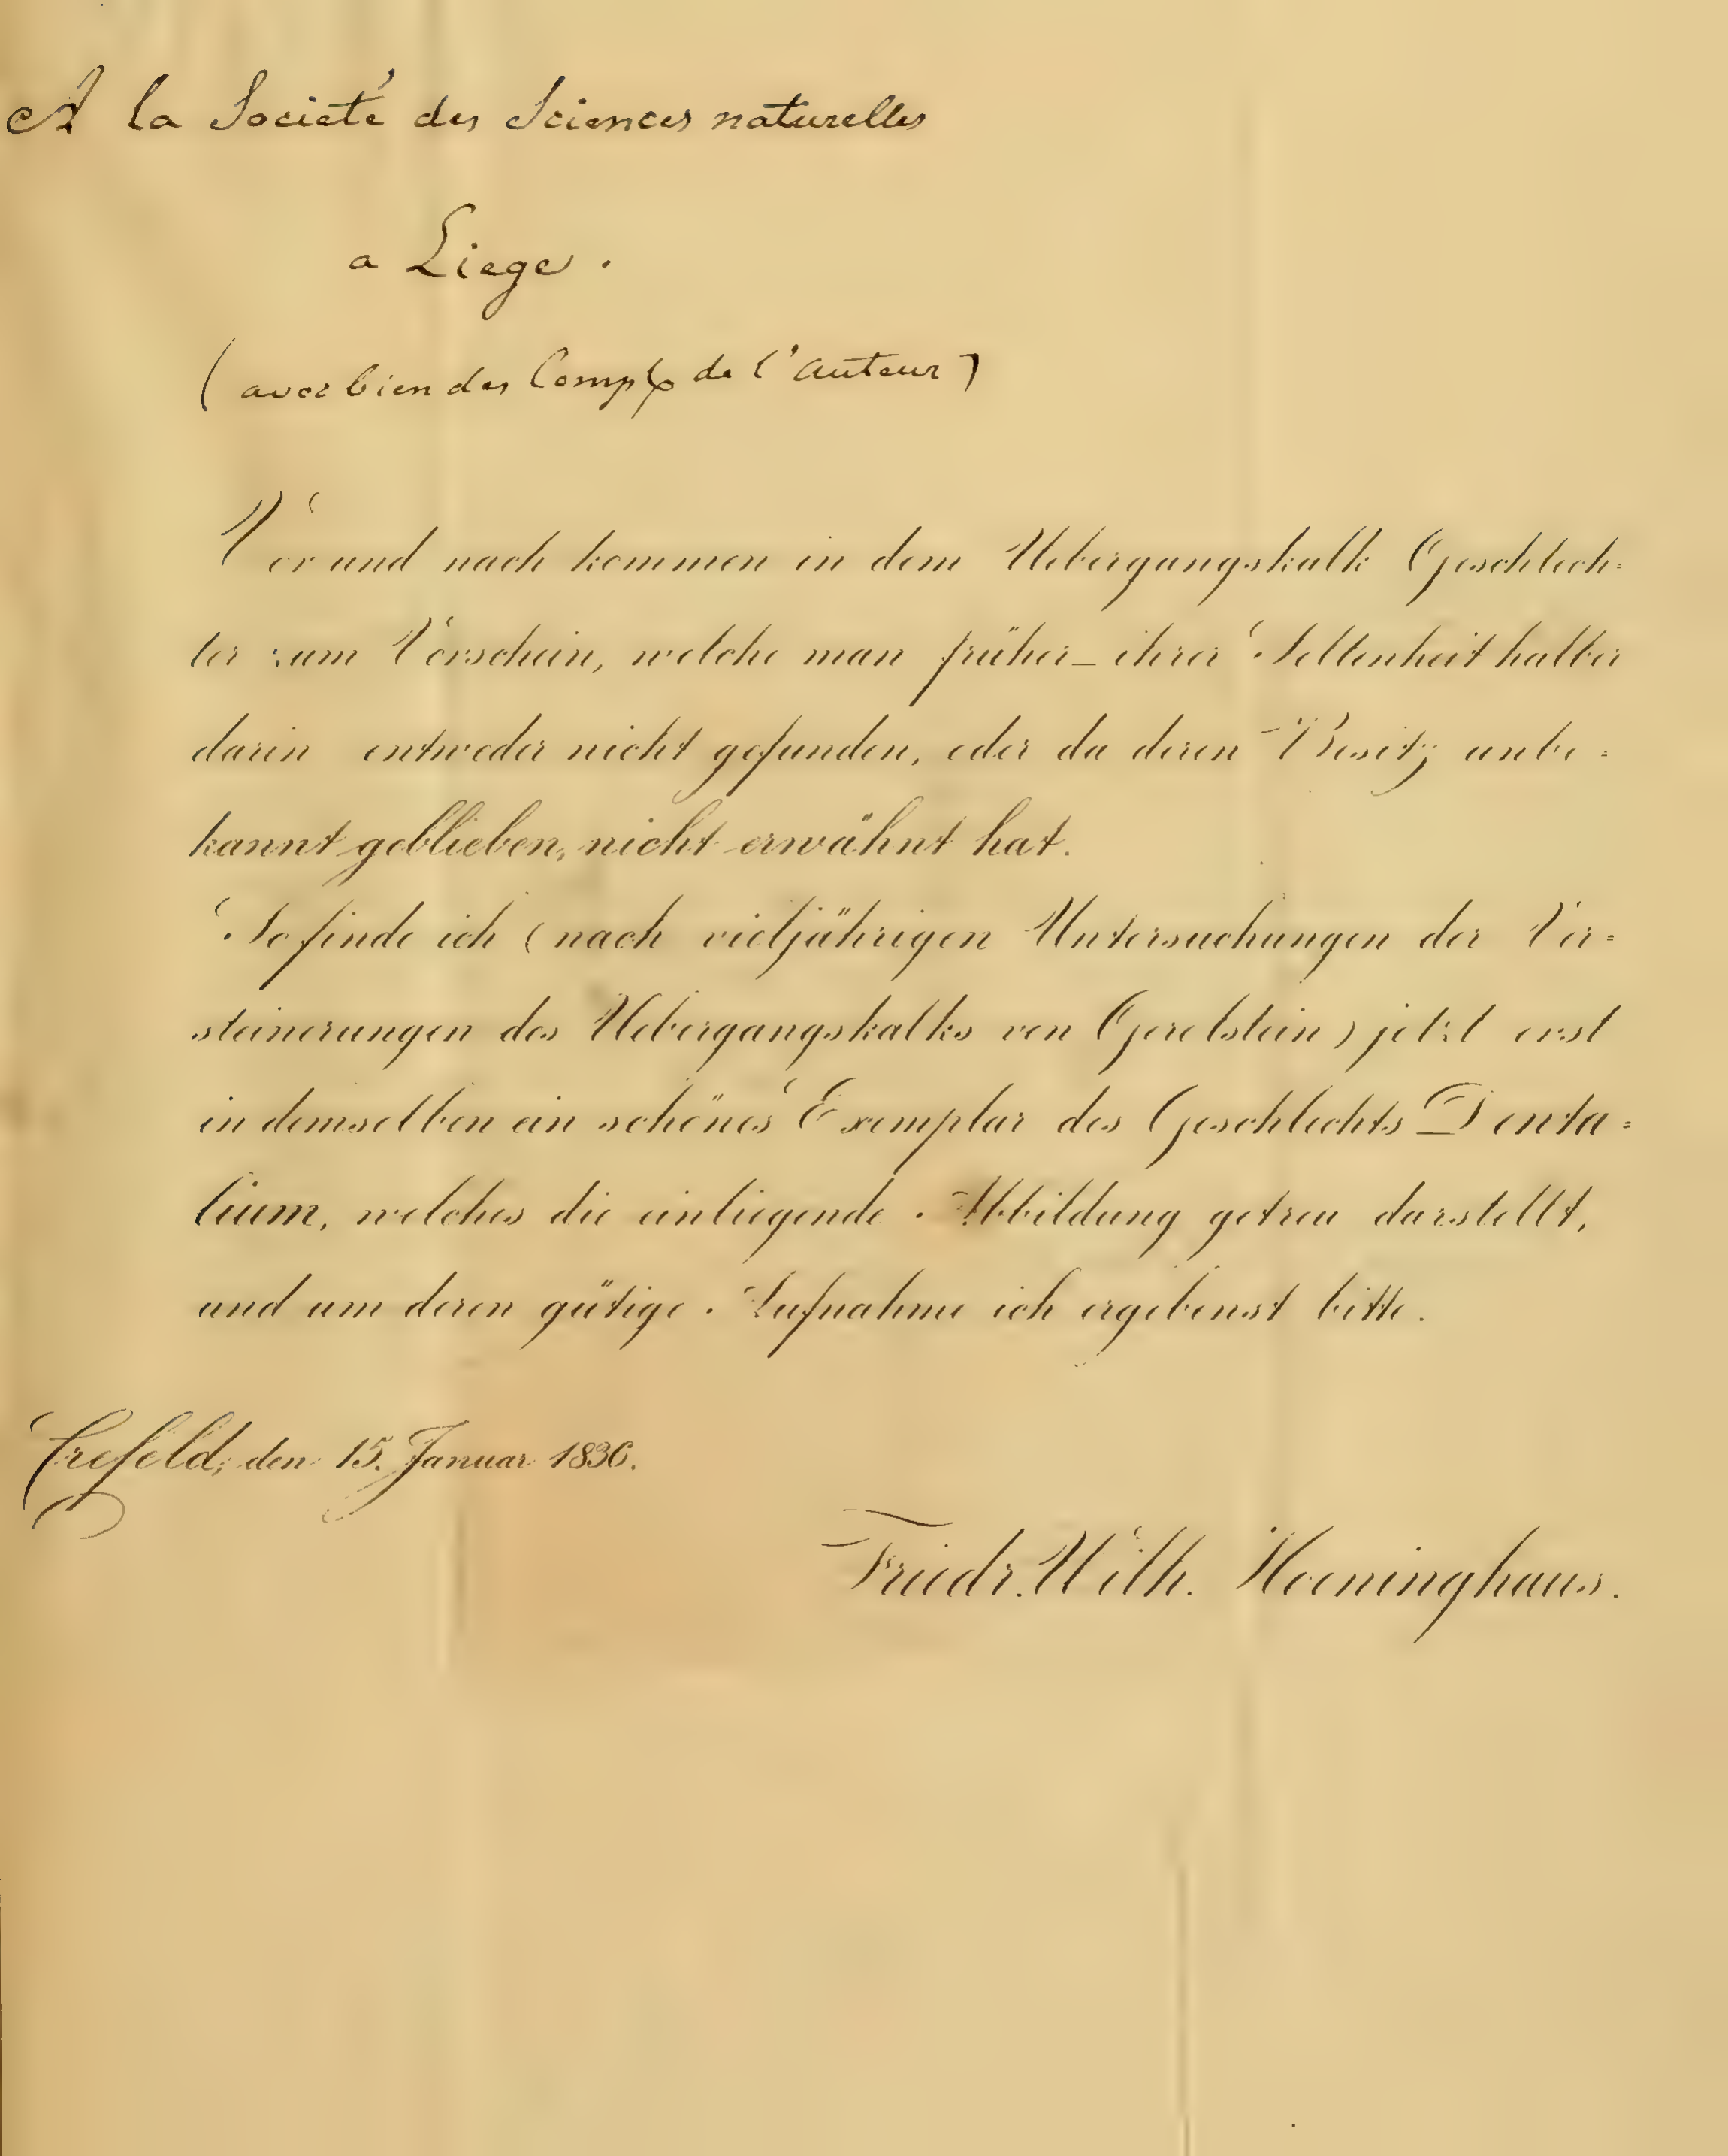 A la Societé des Sciences naturelles
a Liege.
(avec bien des Compl de l'auteur)
Vor und nach kommen in dem Uebergangskalk Geschlech=
ter zum Vorschein, welche man früher_ ihrer Seltenheit halber
darin entweder nicht gefunden, oder da deren Besitz unbe=
kannt geblieben, nicht erwähnt hat.
So finde ich (nach vieljährigen Untersuchungen der Ver=
steinerungen des Uebergangskalks von Gerolstein) jetzt erst
in demselben ein schönes Exemplar des Geschlechts Denta=
lium, welches die einliegende Abbildung getreu darstellt,
und um deren gütige Aufnahme ich ergebenst bitte.
Crefeld, den 15. Januar 1830.
Friedr. Wilh. Hoeninghaus.